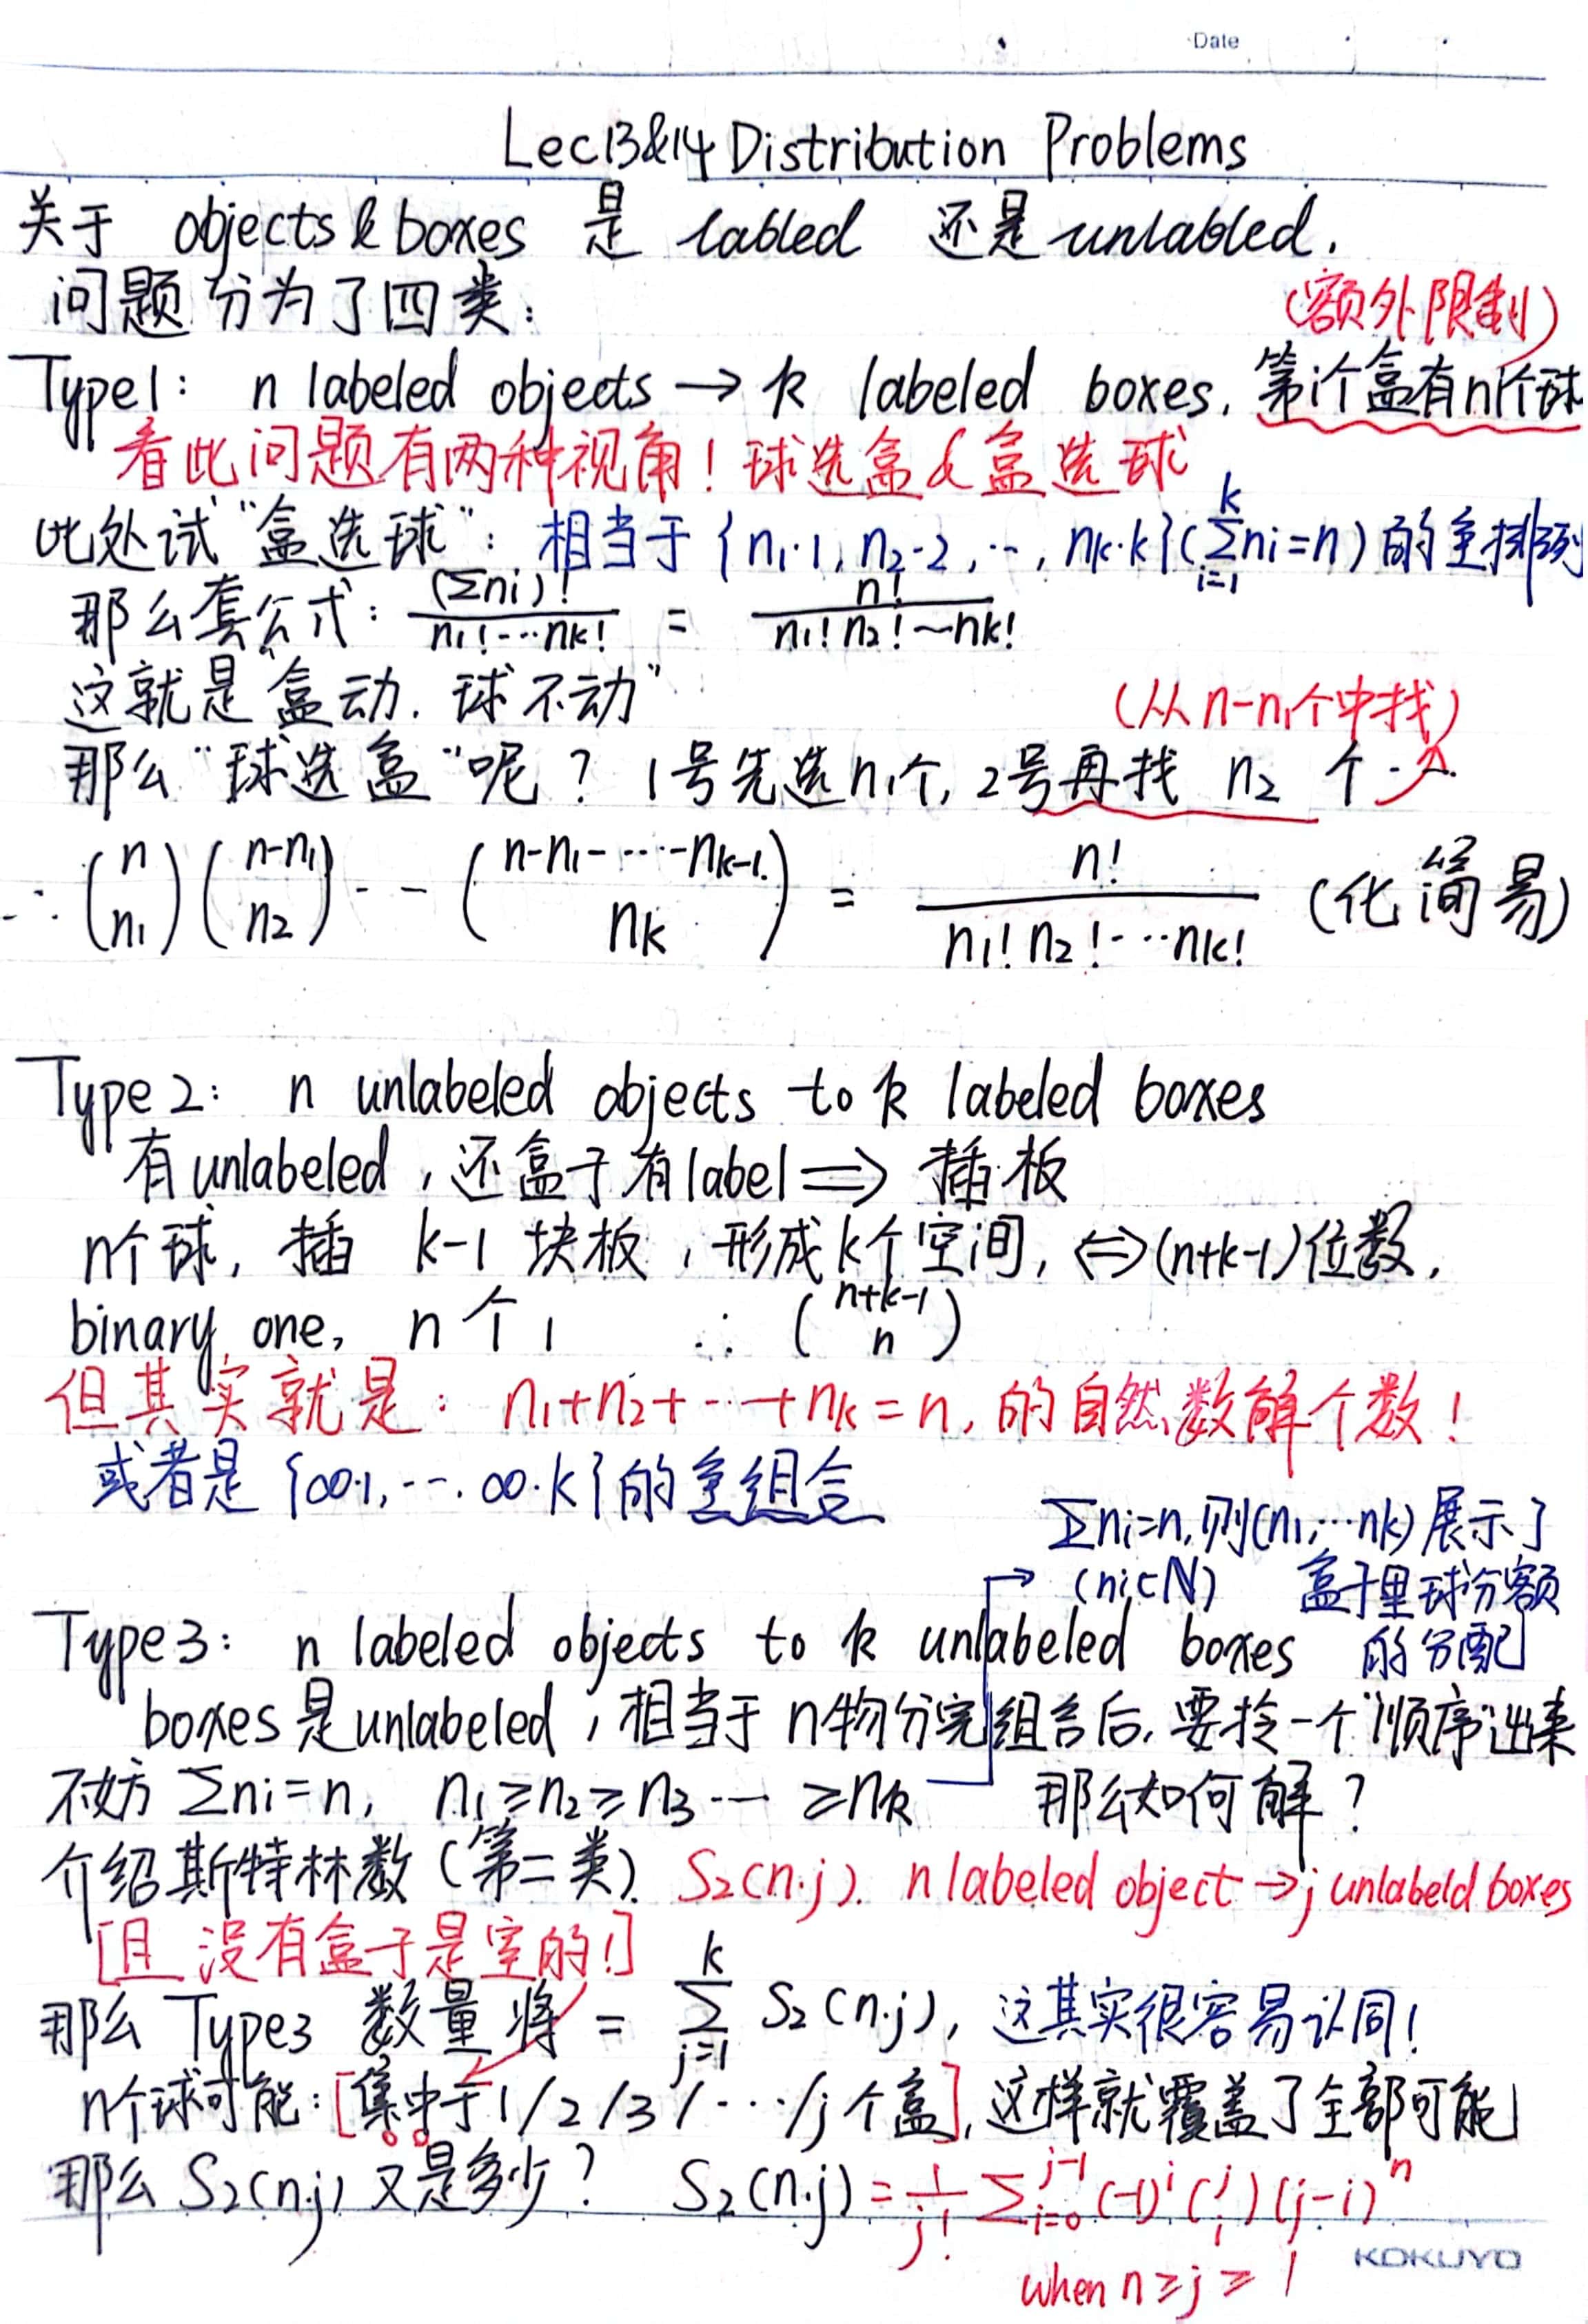 Date
Lec13&14 Distribution Problems
关于 objects & boxes 是 labled 还是 unlabled.
问题分为了四类:
(额外限制)
Type1: n labeled objects → k labeled boxes, 第i个盒有ni个球
看此问题有两种视角! 球选盒 & 盒选球
此处试“盒选球”: 相当于 {n₁·1, n₂·2, ..., nk·k} (∑_{i=1}^{k} ni=n) 的全排列
那么套公式: (∑ni)! / n₁!...nk! = n! / n₁!n₂!~nk!
这就是“盒动. 球不动”
(从n-n₁个中找)
那么“球选盒”呢? 1号先选n₁个, 2号再找 n₂ 个...
∴ (n n₁) (n-n₁ n₂) -- (n-n₁-...-nk-1 nk) = n! / n₁!n₂!...nk! (化简易)
Type2: n unlabeled objects to k labeled boxes
有unlabeled, 还盒子有label ⟹ 插板
n个球, 插 k-1 块板, 形成k个空间, ⟺(n+k-1)位数,
binary one, n个1 ∴ (n+k-1 n)
但其实就是: n₁+n₂+...+nk=n, 的自然数解个数!
或者是 {∞·1, ... ∞·k} 的 组合
∑ni=n, 则(n₁,...nk) 展示了
→ (ni∈N) 盒子里球份额
的分配
Type3: n labeled objects to k unlabeled boxes
boxes是unlabeled, 相当于n物分完组合后, 要拎一个顺序出来
不妨 ∑ni=n, n₁≥n₂≥n₃... ≥nk 那么如何解?
介绍斯特林数(第二类). S₂(n.j). n labeled object → j unlabeld boxes
[且 没有盒子是空的!]
那么 Type3 数量将 = ∑_{j=1}^{k} S₂(n.j), 这其实很容易认同!
n个球可能: [集中于1/2/3/.../j个盒], 这样就覆盖了全部可能
那么 S₂(n.j) 又是多少? S₂(n.j) = 1/j! ∑_{i=0}^{j-1} (-1)^i (j i) (j-i)^n
when n≥j≥1
KOKUYO